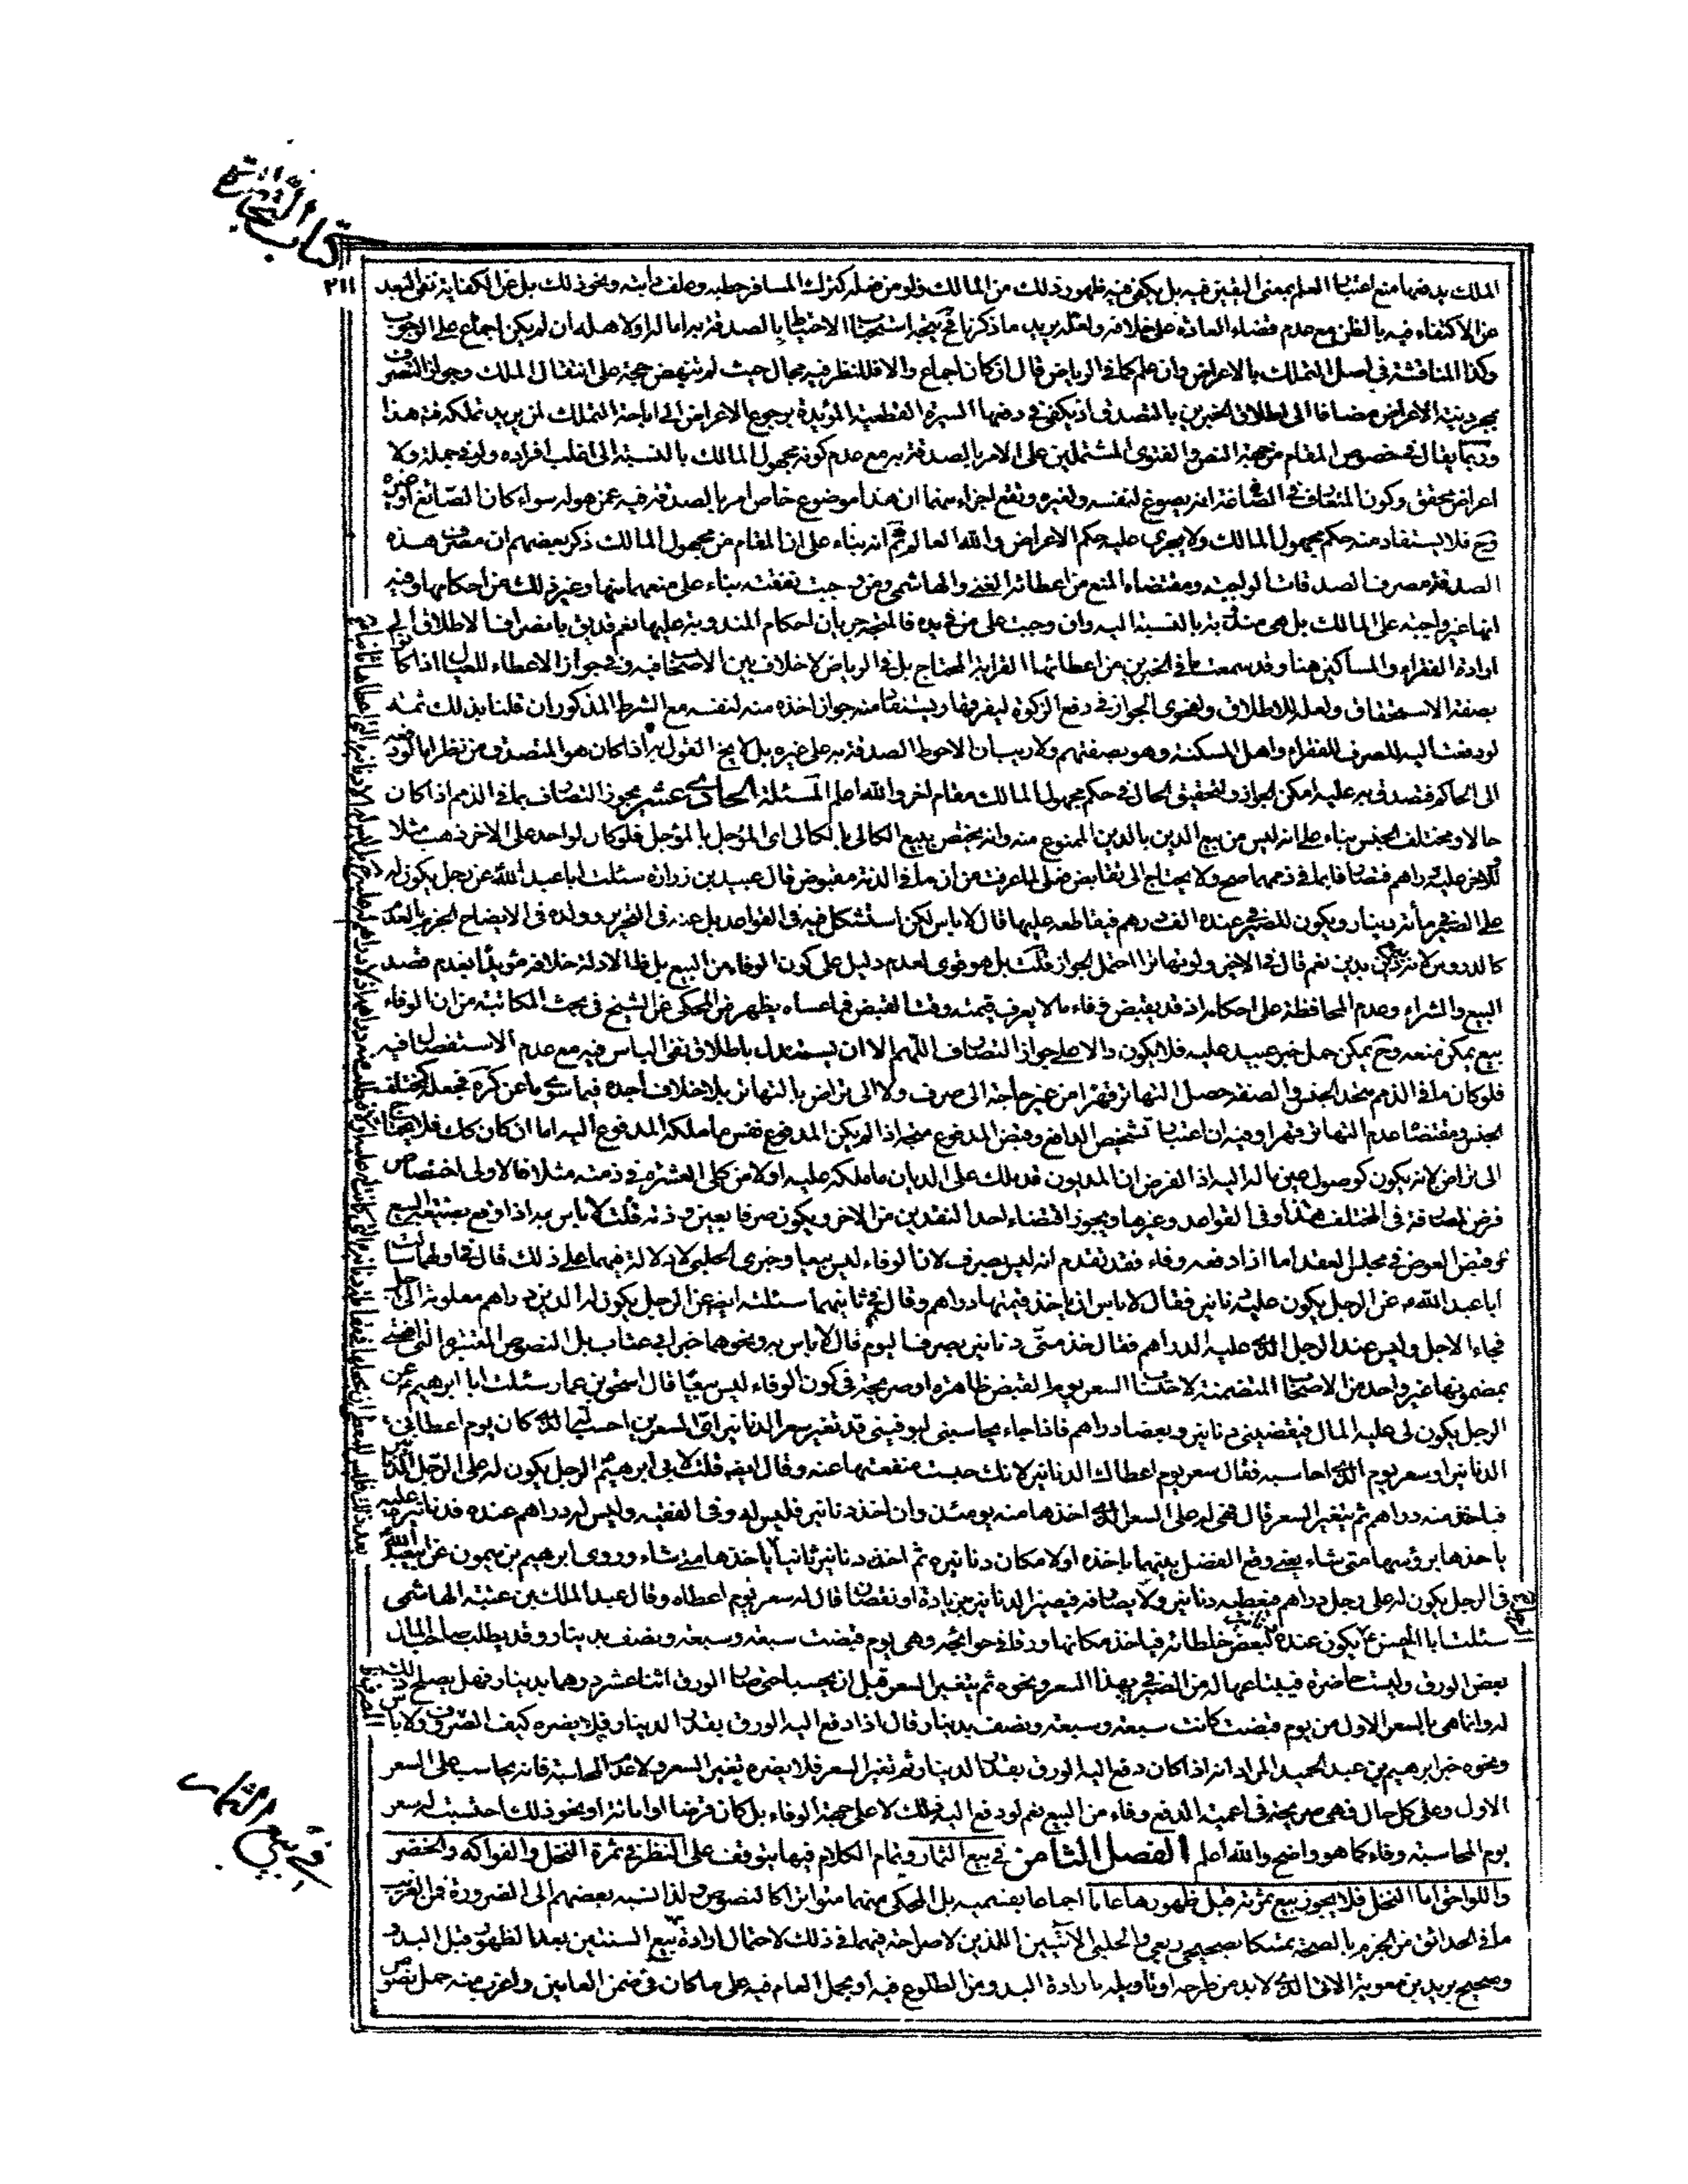 كتاب التجارة
٢١١
الملك يدفنها منع اعتبار العلم بمعنى اليقين فيه بل يكفى فيه ظهور ذلك من المالك ولو من فعله كترك المسافر حطبه وعلف دابته ونحو ذلك بل عن الكفاية نفى البعد
عن الاكتفاء فيه بالظن مع عدم قضاء العادة على خلافه ولعله يريد ما ذكرنا فيتجه استحباب الاحتياط بالصدقة به اما له او لاهله ان لم يكن اجماع على الوجوب
وكذا المناقشة فى اصل التملك بالاعراض وان علم كما فى الرياض قال ان كان اجماع والا فللنظر فيه مجال حيث لم تنهض حجة على انتقال الملك وجواز التصرف
بمجرد نية الاعراض مضافا الى اطلاق الخبرين بالتصدق اذ يكفى فى دفعها السيرة القطعية المؤيدة برجوع الاعراض الى اباحة التملك لمن يريد تملكه فة هذا
وربما يقال فى خصوص المقام من جهة النص والفتوى المشتملين على الامر بالصدقة به مع عدم كونه مجهول المالك بالنسبة الى اغلب افراده ولو فى جملة ولا
اعراض محقق وكون المتعارف فى الصياغة انه يصوغ لنفسه ولغيره وتقع اجزاء منهما ان هذا موضوع خاص امر بالصدقة فيه عمن هو له سواء كان الصائغ او غيره
وح فلا يستفاد منه حكم مجهول المالك ولا يجرى عليه حكم الاعراض والله العالم ثم انه بناء على ان المقام من مجهول المالك ذكر بعضهم ان مصرف هذه
الصدقة مصرف الصدقات الواجبة ومقتضاه المنع من اعطائه الغنى والهاشمى ومن وجبت نفقته بناء على منعهما منها وغير ذلك من احكامها وفيه
انها غير واجبة على المالك بل هى مندوبة بالنسبة اليه وان وجبت على من فى يده فالمتجه جريان احكام المندوبة عليها نعم قد يق بانصراف الاطلاق الى
ارادة الفقراء والمساكين هنا وقد سمعت ما فى الخبرين من اعطائها القرابة المحتاج بل فى الرياض لا خلاف بين الاصحاب فيه وفى جواز الاعطاء للعيال اذا كانوا
بصفة الاستحقاق ولعله للاطلاق ولفحوى الجواز فى دفع الزكوة ليفرقها ويستفاد منه جواز اخذه منه لنفسه مع الشرط المذكور ان قلنا بذلك ثمة
لو دفعت اليه للصرف للفقراء واهل المسكنة وهو بصفتهم ولا ريب ان الاحوط الصدقة به على غيره بل لا يخ القول به اذا كان هو المتصدق ومن نظر اما لو دفعه
الى الحاكم فتصدق به عليه امكن الجواز ولتحقيق الحال فى حكم مجهول المالك مقام اخر والله اعلم المسئلة الحادى عشر يجوز التصارف بما فى الذمم اذا كان
حالا ومختلف الجنس بناء على انه ليس من بيع الدين بالدين الممنوع منه وانه يختص ببيع الكالى بالكالى اى المؤجل بالمؤجل فلو كان لواحد على الاخر ذهب مثلا
وللاخر عليه دراهم فتصارفا بما فى ذممهما صح ولا يحتاج الى تقابض فعلى لما عرفت من ان ما فى الذمة مقبوض قال عبيد بن زرارة سئلت ابا عبد الله عن رجل يكون له
على الصيرفى مأة دينار ويكون للصيرفى عنده الف درهم فيقاطعه عليها قال لا باس لكن استشكل فيه فى القواعد بل عنه فى التحرير وولده فى الايضاح الجزم بالعدم
كالدروس لانه بيع دين بدين نعم قال فى الاخير ولو تهاترا احتمل الجواز قلت بل هو قوى لعدم دليل على كون الوفاء من البيع بل ظ الادلة خلافه مؤيدا بعدم قصد
البيع والشراء وعدم المحافظة على احكامه اذ قد يقبض وفاء ما لا يعرف قيمته وقت القبض فما عساه يظهر من المحكى عن الشيخ فى بحث المكاتبة من ان الوفاء
بيع يمكن منعه وح يمكن حمل خبر عبيد عليه فلا يكون دالا على جواز التصارف اللهم الا ان يستدل باطلاق نفى الباس فيه مع عدم الاستفصال فيه
فلو كان ما فى الذمم متحد الجنس والصفة حصل التهاتر قهرا من غير حاجة الى صرف ولا الى تراض بالتهاتر بلا خلاف اجده فيما سوى ما عن كره فجعله كمختلف
الجنس ومقتضاه عدم التهاتر قهرا وفيه ان اعتبار تشخيص الدافع وقبض المدفوع متجه اذا لم يكن المدفوع نفس ما ملكه المدفوع اليه اما ان كان كك فلا يحتاج
الى تراض لانه يكون كوصول عين ماله اليه اذ الفرض ان المديون قد ملك على الديان ما ملكه عليه اولا من كلى العشرة فى ذمته مثلا فالاولى اختصاص
فرض المصارفة فى المختلف هذا وفى القواعد وغيرها ويجوز اقتضاء احد النقدين من الاخر ويكون صرفا بعين وذمة قلت لا باس به اذا وقع بصيغة البيع
مع قبض العوض فى مجلس العقد اما اذا دفعه وفاء فقد تقدم انه ليس بصرف لان الوفاء ليس بيعا وخبرى الحلبى لا دلالة فيهما على ذلك قال فى اولهما سالت
ابا عبد الله ع عن الرجل يكون عليه دنانير فقال لا باس ان ياخذ قيمتها دراهم وقال فى ثانيهما سئلته ايض عن الرجل يكون له الدين دراهم معلومة الى اجل
فجاء الاجل وليس عند الرجل الذى عليه الدراهم فقال خذ منى دنانير بصرف اليوم قال لا باس به ونحوهما خبر ابى عتاب بل النصوص المعتبرة التى افتى
بمضمونها غير واحد من الاصحاب المتضمنة لاحتساب السعر يوم القبض ظاهرة او صريحة فى كون الوفاء ليس بيعا قال اسحق بن عمار سئلت ابا ابرهيم ع عن
الرجل يكون لى عليه المال فيقضينى دنانير وبعضا دراهم فاذا جاء يحاسبنى ليوفينى قد تغير سعر الدنانير اى السعرين احسب له الذى كان يوم اعطانى
الدنانير او سعر يوم الذى احاسبه فقال سعر يوم اعطاك الدنانير لانك حبست منفعتها عنه وقال ايض قلت لابى ابرهيم الرجل يكون له على الرجل الدنانير
فياخذ منه دراهم ثم يتغير السعر قال فهى له على السعر الذى اخذها منه يومئذ وان اخذ دنانير فليس له وفى الفقيه وليس له دراهم عنده فدنانيره عليه
ياخذها برؤسها متى شاء يعنى وقع الفضل بينهما باخذه اولا مكان دنانيره ثم اخذ دنانير ثانيا ياخذها متى شاء وروى ابرهيم بن ميمون عن ابيعبد الله ع
فى الرجل يكون له على رجل دراهم فيعطيه دنانير ولا يصارفه فيصير الدنانير بزيادة او نقصان قال له سعر يوم اعطاه وقال عبد الملك بن عتبة الهاشمى
سئلت ابا الحسن ع يكون عنده لبعض خلطائه فياخذ مكانها ورقا فى حوائجه وهى يوم قبضت سبعة وسبعة ونصف بدينار وقد يطلب صاحب المال
بعض الورق وليست حاضرة فيبتاعها له من الصيرفى بهذا السعر ونحوه ثم يتغير السعر قبل ان يحتسبا حتى صار الورق اثنا عشر درهما بدينار فهل يصلح ذلك
له وانما هى بالسعر الاول من يوم قبضت كانت سبعة وسبعة ونصف بدينار قال اذا دفع اليه الورق بقدر الدينار فلا يضره كيف الصروف ولا باس
ونحوه خبر ابرهيم بن عبد الحميد المراد انه اذا كان دفع اليه الورق بقدر الدينار ثم تغير السعر فلا يضره تغير السعر ولا عدم المحاسبة فانه يحاسب على السعر
الاول وعلى كل حال فهى صريحة فى اعمية الدفع وفاء من البيع نعم لو دفع اليه ذلك لا على جهة الوفاء بل كان قرضا او امانة او نحو ذلك احتسبت له سعر
يوم المحاسبة وفاء كما هو واضح والله اعلم الفصل الثامن فى بيع الثمار وتمام الكلام فيها يتوقف على النظر فى ثمرة النخل والفواكه والخضر
واللواحق اما النخل فلا يجوز بيع ثمرته قبل ظهورها عاما اجماعا بقسميه بل المحكى منهما متواترا كالنصوص ولذا نسبه بعضهم الى الضرورة فمن الغريب
ما فى الحدائق من الجزم بالصحة تمسكا بصحيحى ربعى والحلبى الآتيين اللذين لا صراحة فيهما فى ذلك لاحتمال ارادة بيع السنتين بعد الظهور قبل البدو
وصحيح بريد بن معوية الاتى الذى لا بد من طرحه او تأويله بارادة البدو من الطلوع فيه او يحمل العام فيه على ما كان فى ضمن العامين واغرب منه حمل نصوص
فى بيع الثمار